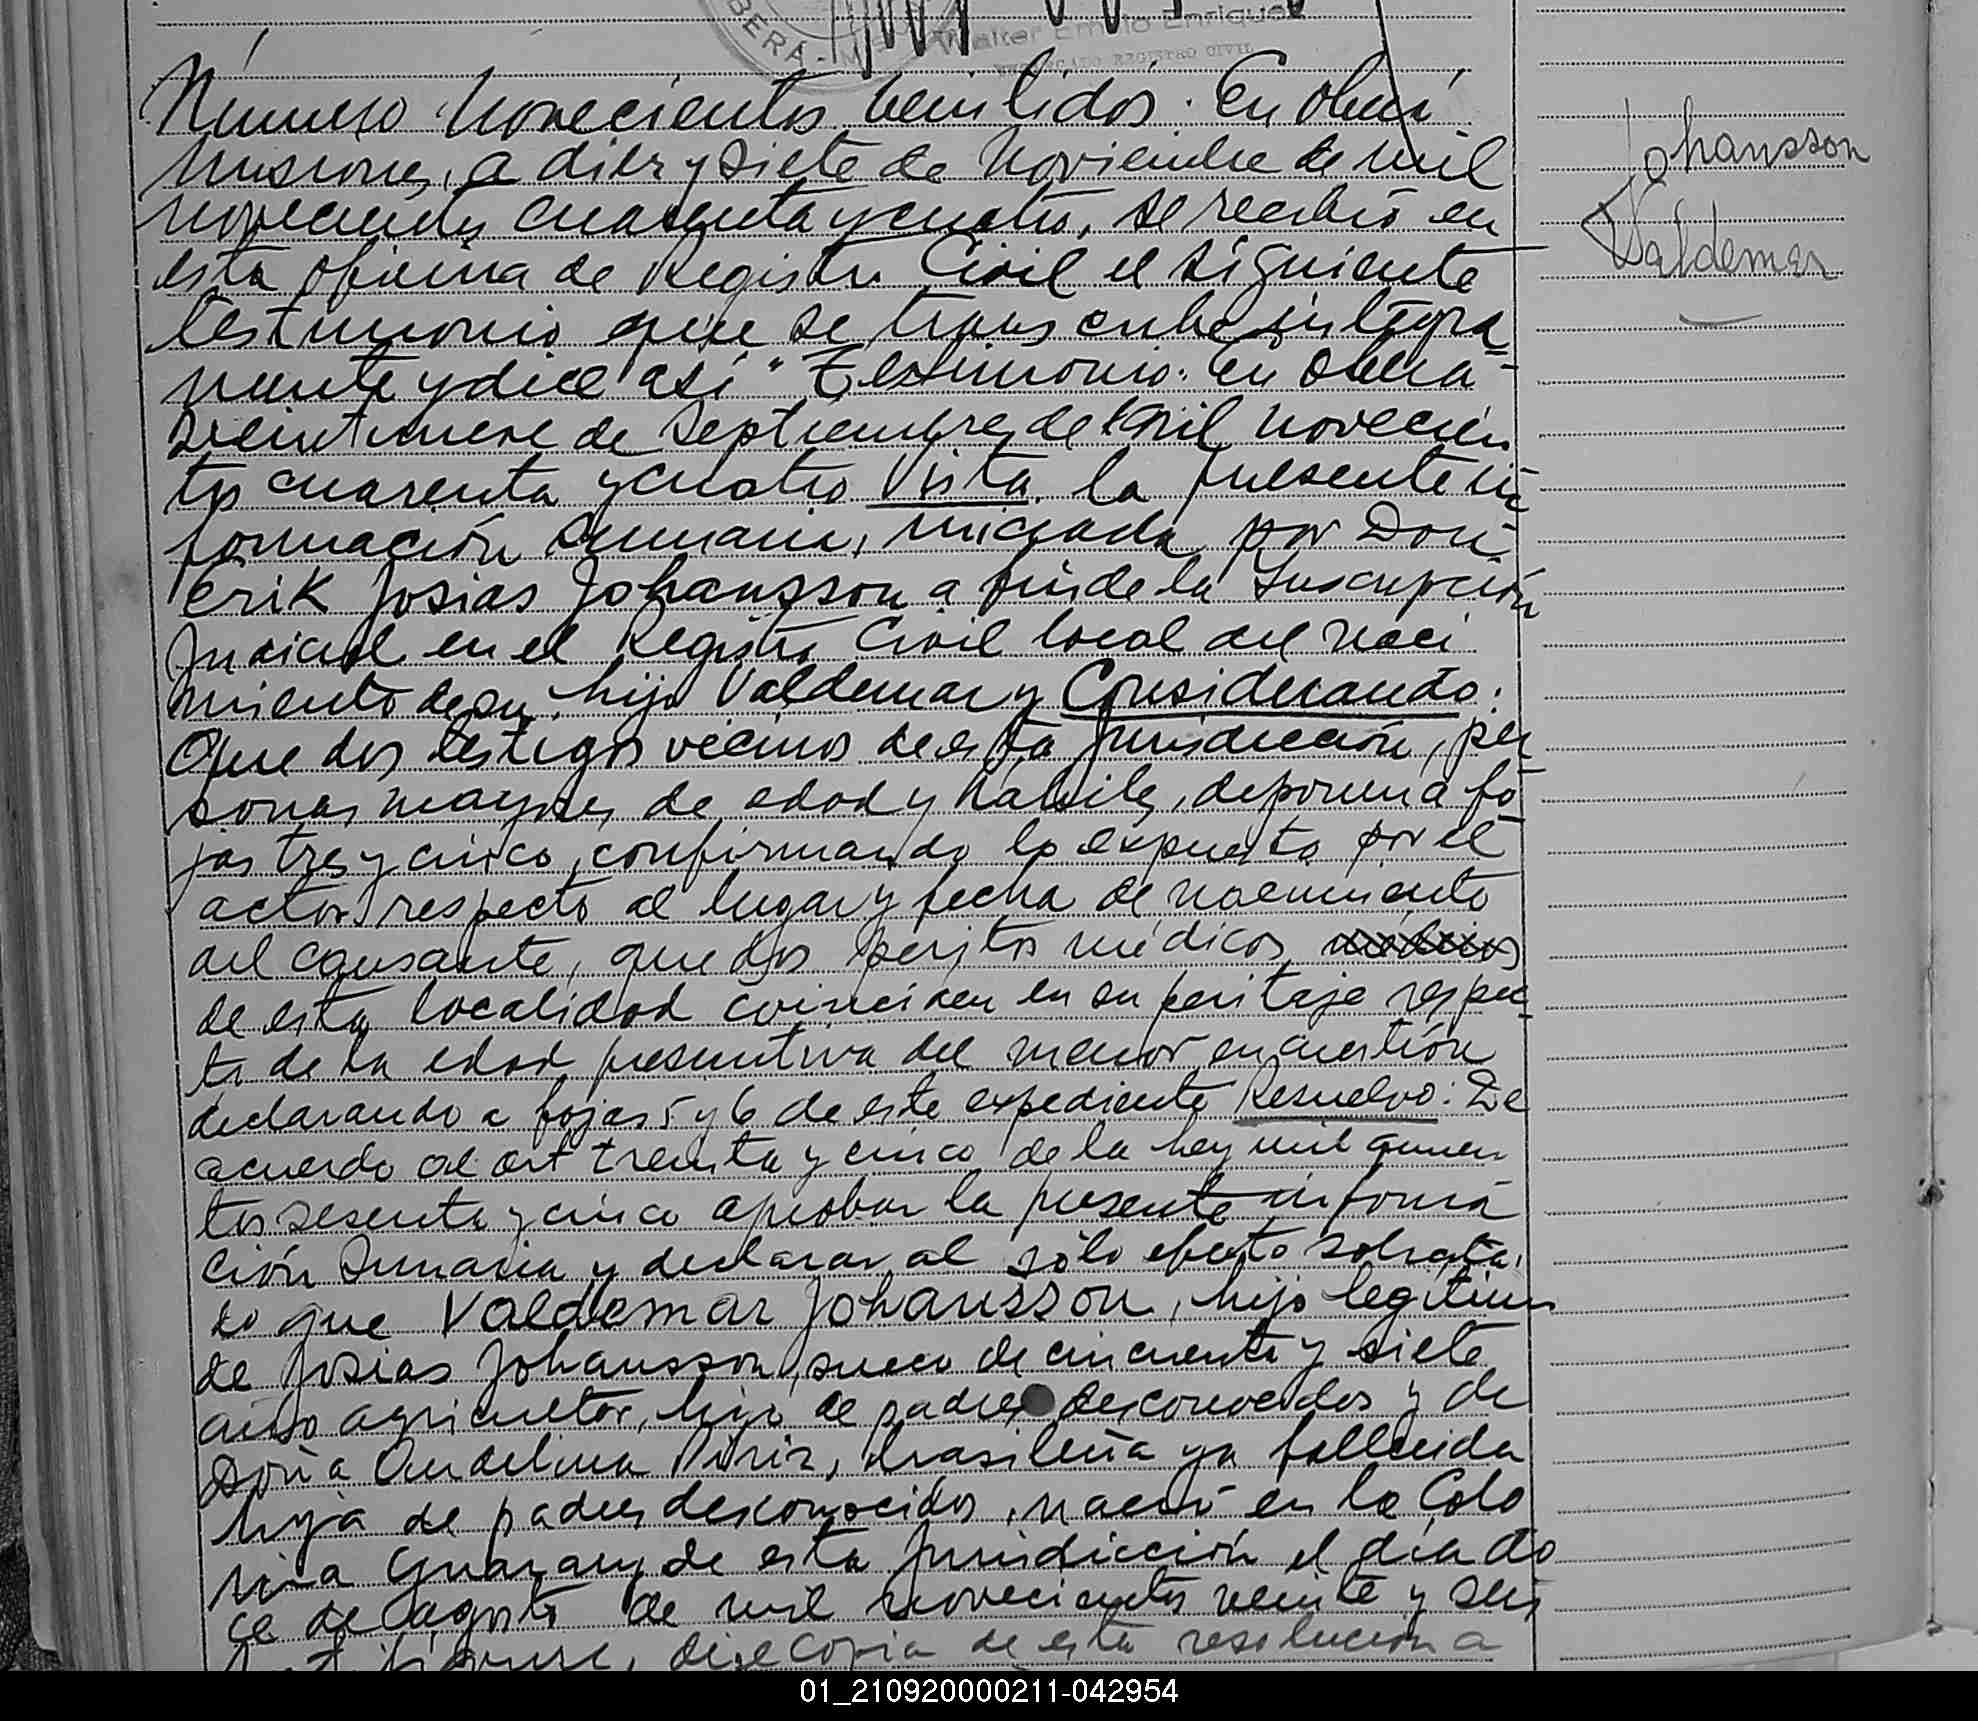 BERA - M
Walter Emilio Enriquez
REGISTRO CIVIL
Número Novecientos veintidós. En Oberá
Misiones, a diez y siete de Noviembre de mil
novecientos cuarenta y cuatro, se recibió en
esta oficina de Registro Civil el siguiente
testimonio que se transcribe integra
mente y dice así "Testimonio. En Oberá
veintinueve de Septiembre de mil novecien
tos cuarenta y cuatro Vista la presente in
formación sumaria, iniciada por Don
Erik Josias Johansson a fin de la Inscripción
Judicial en el Registro Civil local del naci
miento de su hijo Valdemar y Considerando:
Que dos testigos vecinos de esta jurisdicción, per
sonas mayores de edad y hábiles, deponen a fo
jas tres y cinco, confirmando lo expuesto por el
actor respecto al lugar y fecha de nacimiento
del causante, que dos peritos médicos
de esta localidad coinciden en su peritaje respec
to de la edad presuntiva del menor en cuestión
declarando a fojas 5 y 6 de este expediente Resuelvo: De
acuerdo al art treinta y cinco de la ley mil quinien
tos sesenta y cinco aprobar la presente informa
ción sumaria y declarar al sólo efecto solicita
do que Valdemar Johansson, hijo legítimo
de Josias Johansson, sueco de cincuenta y siete
años agricultor, hijo de padres desconocidos y de
doña Andelina Piriz, brasileña ya fallecida
hija de padres desconocidos, nació en la Colo
nia Guarany de esta jurisdicción el día do
ce de agosto de mil novecientos veinte y seis
dese copia de esta resolución a
Johansson
Valdemar
01_210920000211-042954